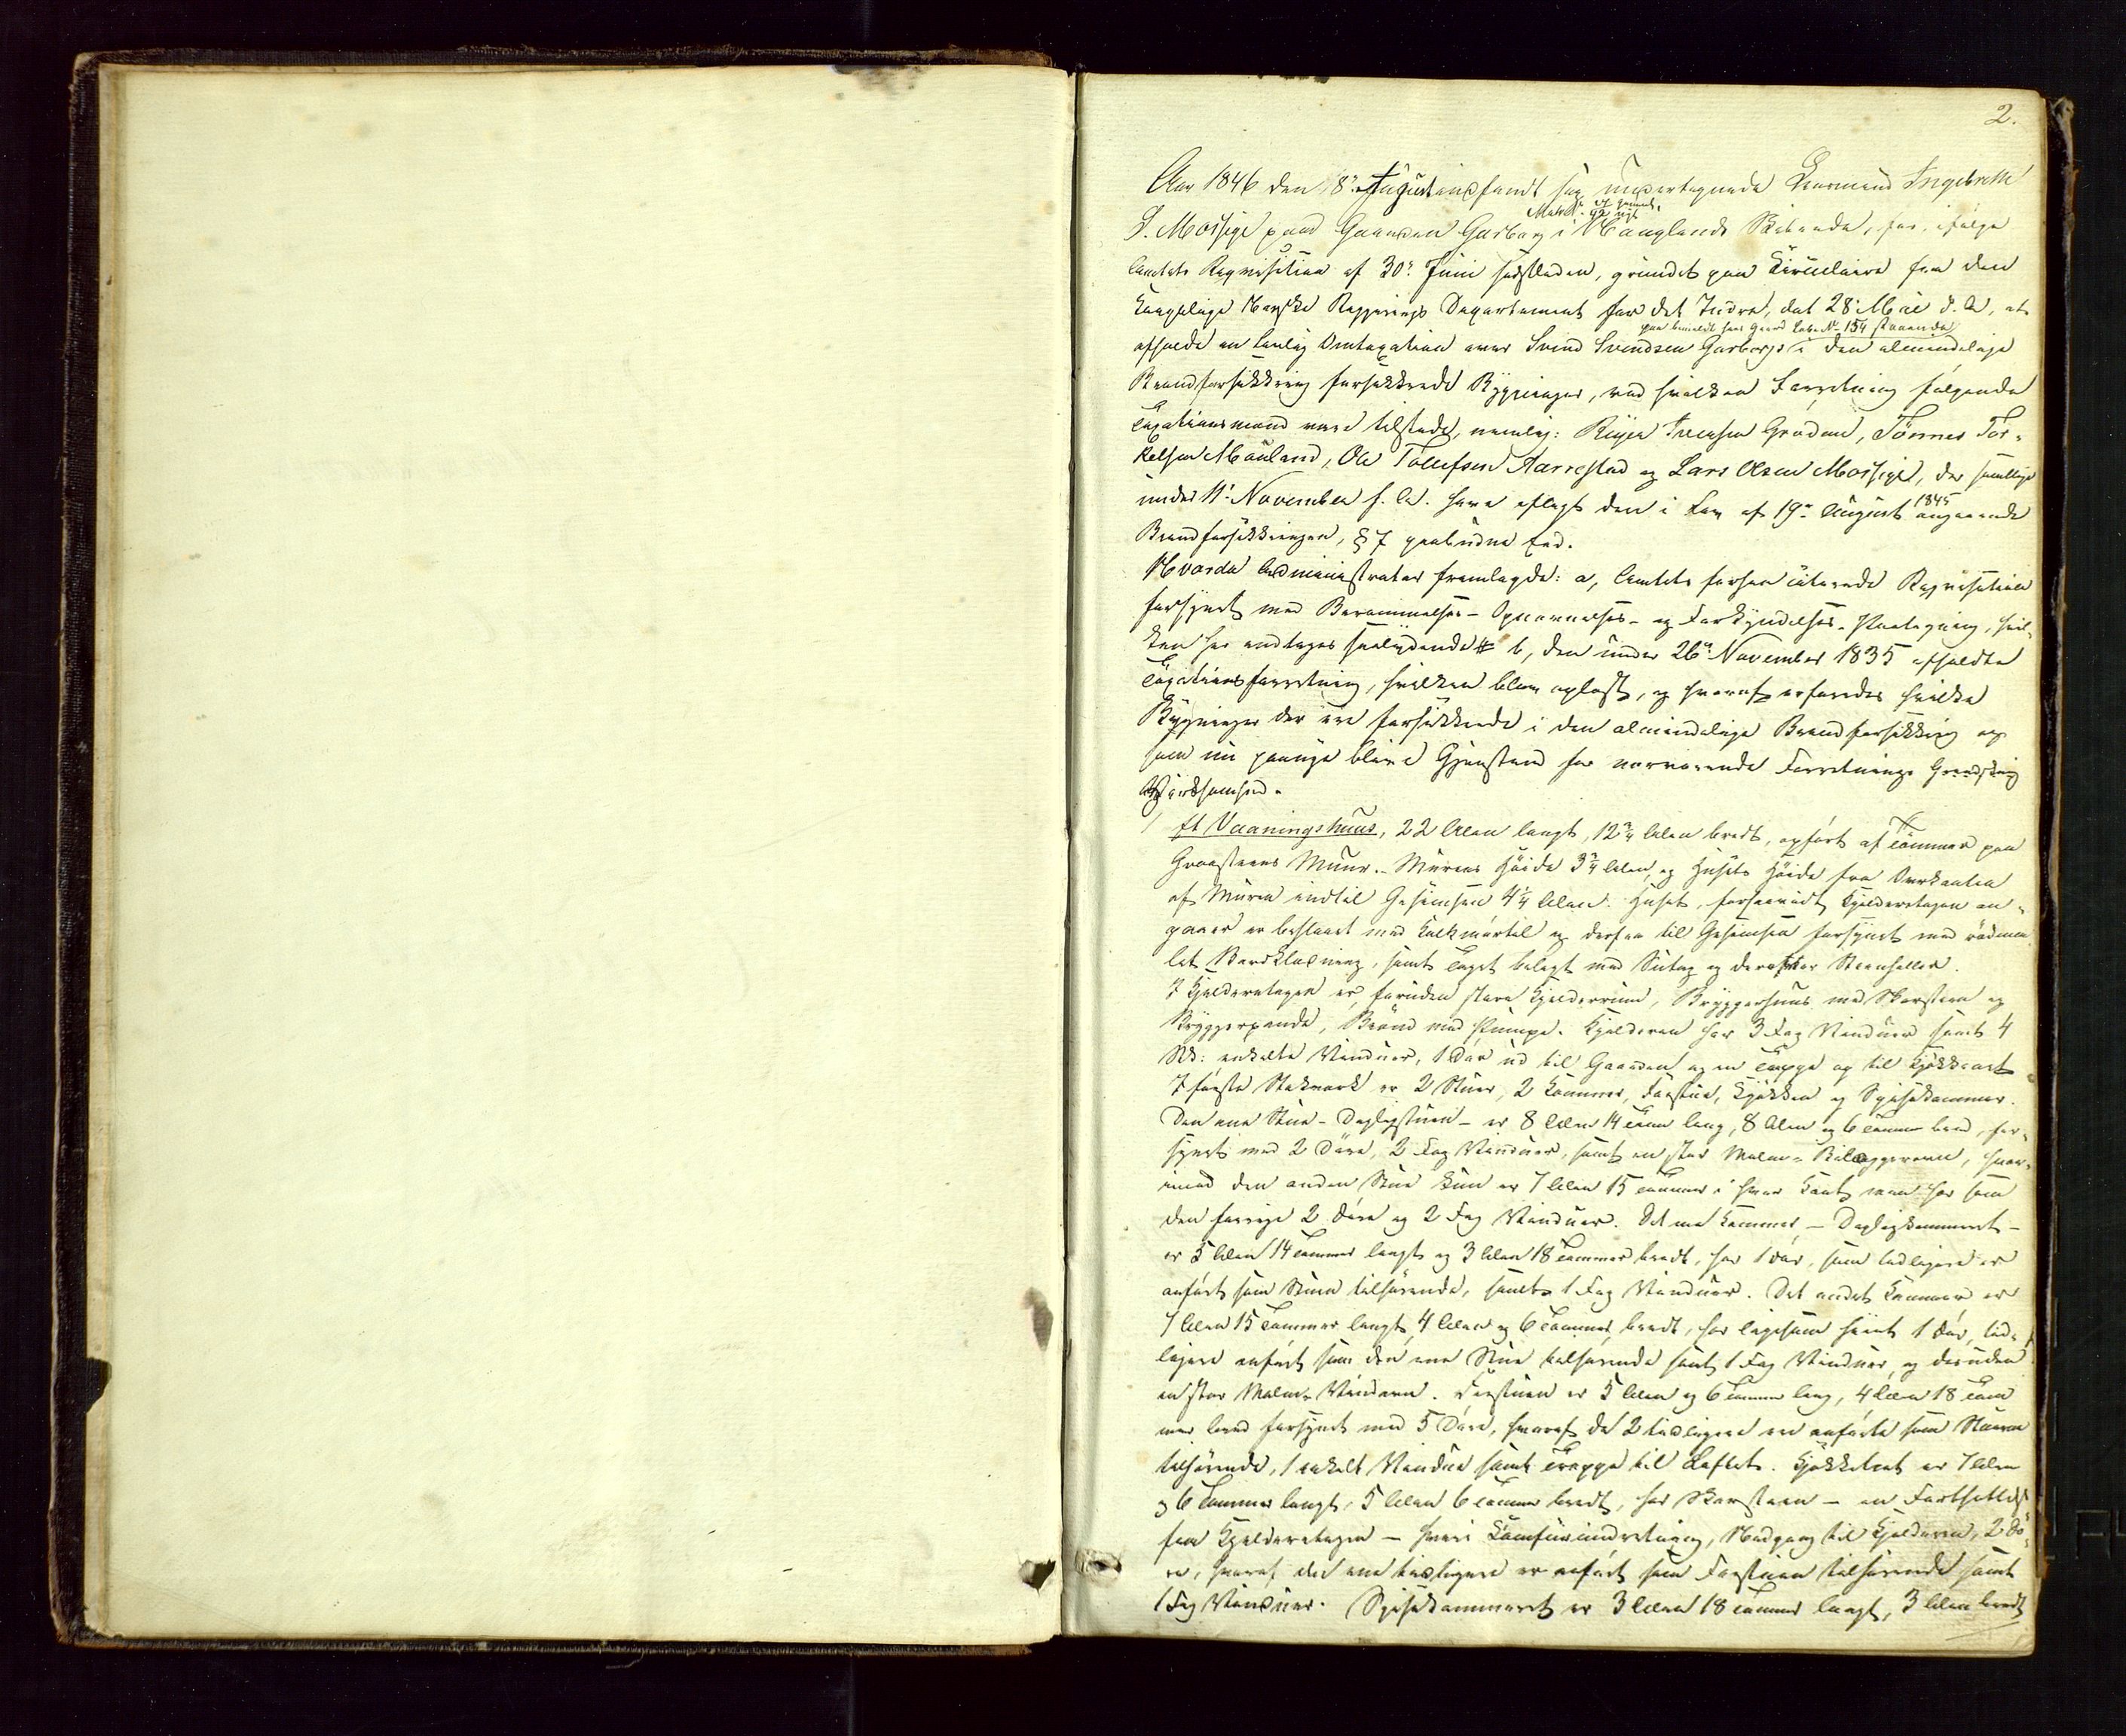 2.
Aar 1846 den 18de August indfandt sig undertegnede Lensmand Ingebreth
Matr. No 92 nyt
S. Mossige paa Gaarden Garborg i Haaglands Skibrede, for, ifølge
Amtets Reqvisition af 30te Juni sidstleden, grundet paa Circulaire fra den
Kongelige Norske Regjerings Departement for det Indre, dat 28de Mai d. A, at
paa bemeldt hans Gaard Løbe No 154 staaende
afholde en lovlig Omtaxation over Svend Svendsen Garborgs i den almindelige
Brandforsikkring forsikkrede Bygninger, ved hvilken Forretning følgende
Taxationsmænd vare tilstede, nemlig: Reier Svensen Grødem, Tønnes Tor-
kelsen Mauland, Ole Tollefsen Aarrestad og Lars Olsen Mossige, der samtlige
under 11te November f. A. have aflagt den i Lov af 19de August 1845 angaaende
Brandforsikkringen, § 7 paabudne Eed.
Hvorda Administrator fremlagde: a, Amtets forhen citerede Reqvisition
forsynet med Berammelses- Opnævnelses- og Forkyndelses-Paategning, hvil-
ken her indtages saalydende # b, den under 26de November 1835 afholdte
Taxationsforretning, hvilken blev oplæst, og hvoraf erfaredes hvilke
Bygninger der ere forsikkrede i den almindelige Brandforsikkring og
som nu paanye blive Gjenstand for nærværende Forretnings
Virksomhed.
1/ Et Vaaningshuus, 22 Alen langt, 12 3/4 Alen bredt, opført af Tømmer paa
Graasteens Muur. Murens Høide 3 3/4 Alen, og Husets Høide fra Overkanten
af Muren indtil Gesimsen 4 1/4 Alen. Huset, forsaavidt Kjelderetagen an-
gaaer er beslaaet med Kalkmørtel og derfra til Gesimsen forsynet med rødma-
let Bordklædning, samt Taget belagt med Sutag og derefter Steenheller.
I Kjelderetagen er foruden store Kjelderrum, Bryggerhuus med Skorsteen og
Bryggerpande, Brønd med Pumpe. Kjelderen har 3 Fag Vinduer samt 4
Stk: enkelte Vinduer, 1 Dør ud til Gaarden og en Trappe op til Kjøkkenet
I første Stokverk er 2 Stuer, 2 Kammer, Forstue, Kjøkken og Spisekammer.
Den ene Stue - Dagligstuen - er 8 Alen 14 Tom: lang, 8 Alen og 6 Tommer bred, for-
synet med 2 Døre, 2 Fag Vinduer, samt en stor Malm-Bilæggerovn, hvor-
imod den anden Stue kun er 7 Alen 15 Tommer i hver Kant, men har som
den forrige 2 Døre og 2 Fag Vinduer. Det ene Kammer - Dagligkammeret -
er 5 Alen 14 Tommer langt og 3 Alen 18 Tommer bredt, har 1 Dør, som tidligere er
anført som Stuen tilhørende, samt 1 Fag Vinduer. Det andet Kammer er
7 Alen 15 Tommer langt, 4 Alen og 6 Tommer bredt, har ligesom hiint 1 Dør, tid-
ligere anført som den ene Stue tilhørende samt 1 Fag Vinduer, og desuden
en stor Malm-Vindovn. Forstuen er 5 Alen og 6 Tommer lang, 4 Alen 18 Tom-
mer bred forsynet med 5 Døre, hvoraf de 2 tidligere ere anførte som Stuerne
tilhørende, 1 enkelt Vindue samt Trappe til Loftet. Kjøkkenet er 7 Alen
og 6 Tommer langt, 5 Alen 6 Tommer bredt, har Skorsteen - en Fortsættelse
fra Kjelderetagen - hvori Komfurindretning, Nedgang til Kjelderen, 2 Dø-
re, hvoraf den ene tidligere er anført som Forstuen tilhørende samt
1 Fag Vinduer. Spisekammeret er 3 Alen 18 Tommer langt, 3 Alen bredt